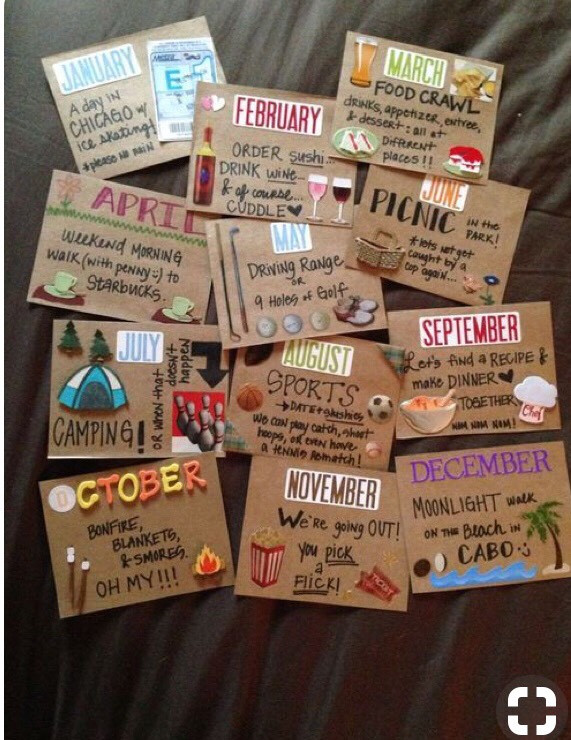 JANUARY
A day in
CHICAGO w/
ice skating!
*please no rain
E
FEBRUARY
ORDER sushi...
DRINK wine...
& of course...
CUDDLE
MARCH
FOOD CRAWL
drinks, appetizer, entree,
& dessert: all at
Different
places!!
APRIL
Weekend MORNING
walk (with penny :) to
STARBUCKS.
MAY
DRIVING RANGE
OR
9 Holes of Golf
JUNE
PICNIC IN THE
PARK!
*lets not get
caught by a
cop again...
JULY
CAMPING!
OR when that
doesn't
happen
AUGUST
SPORTS
→DATE + slushies
We can play catch, shoot
hoops, or even have
a tennis rematch!
SEPTEMBER
Let's find a RECIPE &
make DINNER
TOGETHER
NOM NOM NOM!
Chef
OCTOBER
BONFIRE,
BLANKETS,
& SMORES.
OH MY!!!
NOVEMBER
We're going OUT!
you pick
a
FLICK!
TICKET
DECEMBER
MOONLIGHT walk
ON THE Beach in
CABO